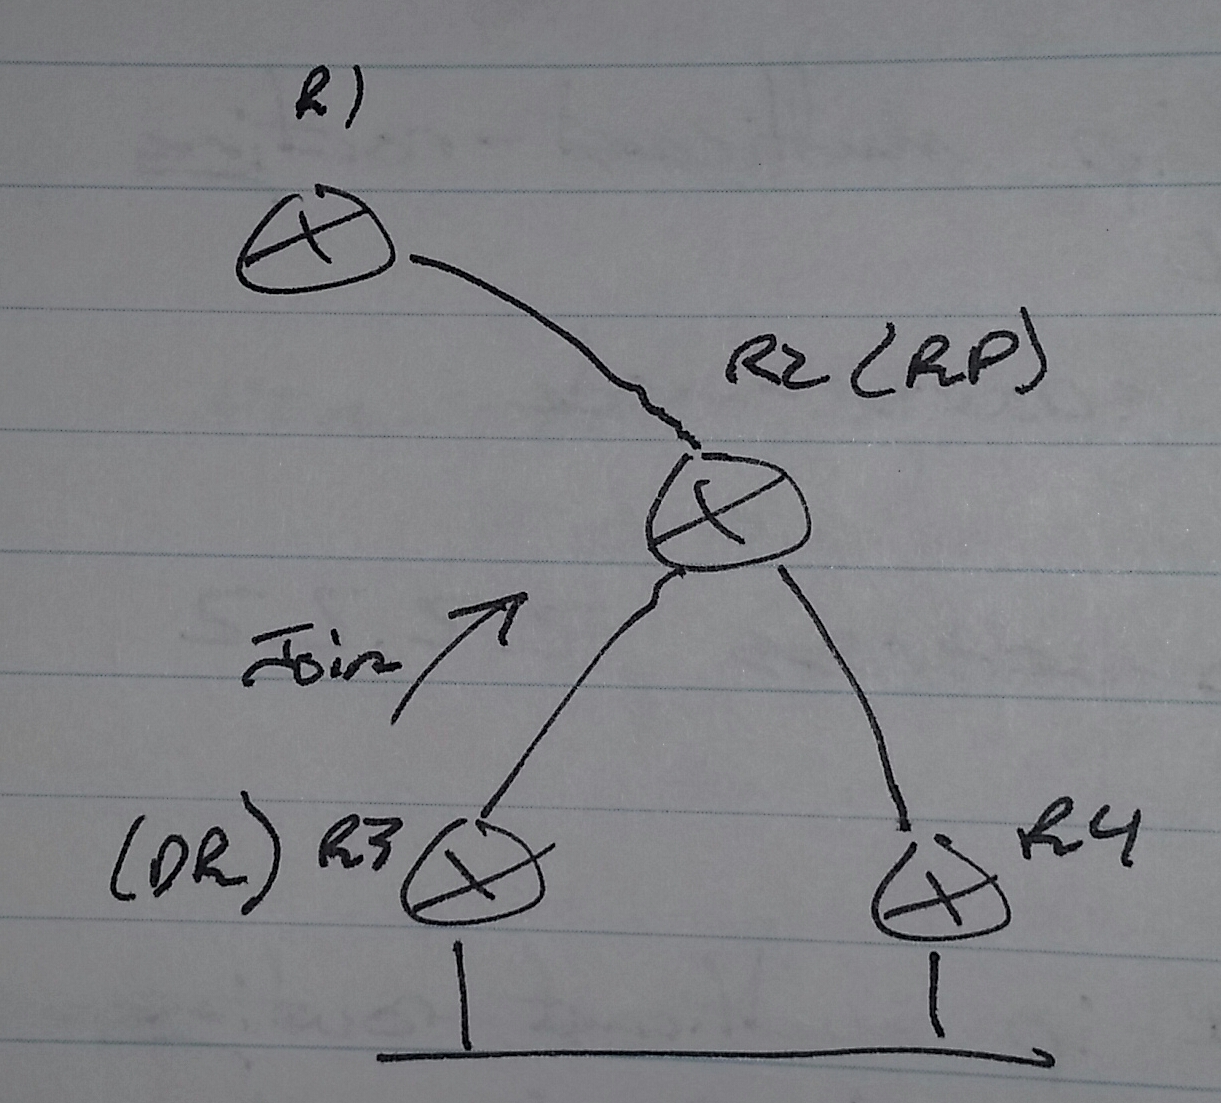 R1
R2 (RP)
Join
(DR) R3
R4